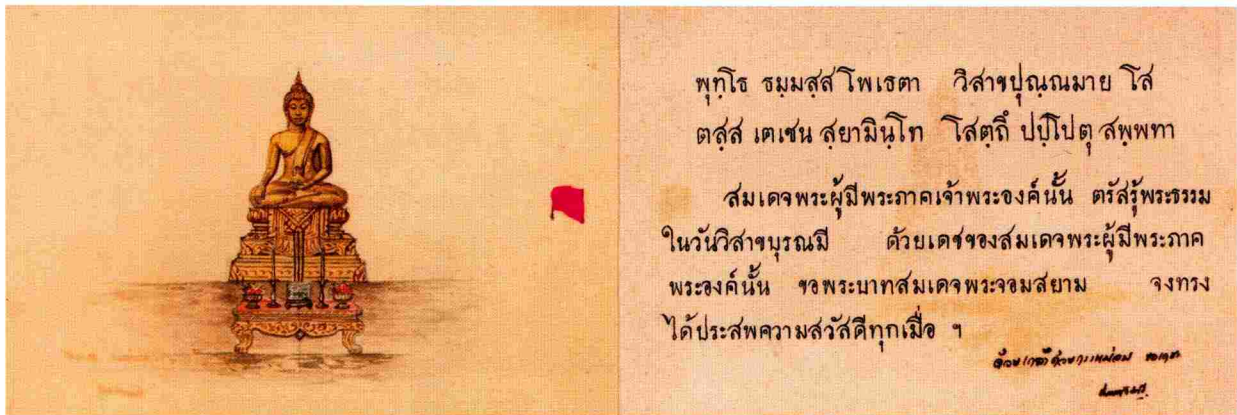 พุทฺโธ ธมฺมสฺส โพเธตา วิสาขปุณฺณมาย โส
ตสฺส เตเชน สฺยามินฺโท โสตฺถึ ปปฺโปตุ สพฺพทา
สมเดจพระผู้มีพระภาคเจ้าพระองค์นั้น ตรัสรู้พระธรรม
ในวันวิสาขบุรณมี ด้วยเดชของสมเดจพระผู้มีพระภาค
พระองค์นั้น ขอพระบาทสมเดจพระจอมสยาม จงทรง
ได้ประสพความสวัสดีทุกเมื่อ ฯ